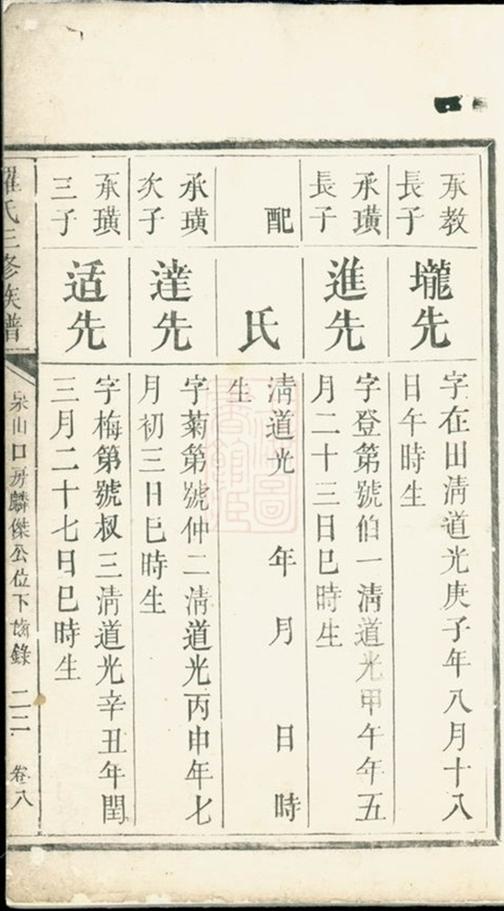 承教
長子
壠先
字在田清道光庚子年八月十八
日午時生
承璜
長子
進先
字登第號伯一清道光甲午年五
月二十三日巳時生
配
氏
清道光 年 月 日 時
生
承璜
次子
達先
字菊第號仲二清道光丙申年七
月初三日巳時生
承璜
三子
适先
字梅第號叔三清道光辛丑年閏
三月二十七日巳時生
羅氏三修族譜
泉山口房麟傑公位下齒錄 二二 卷八